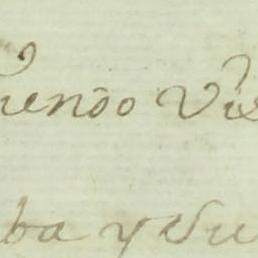 uendo Vis
ba y Su